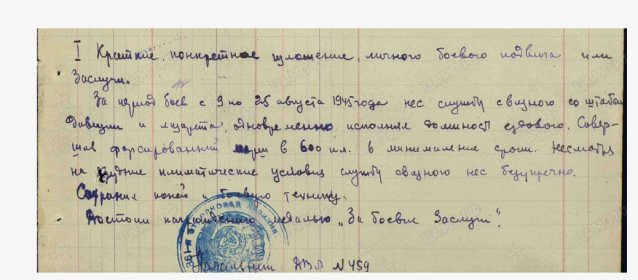 I Краткие, конкретное изложение, личного боевого подвига или
Заслуги.
За период боев с 9 по 25 августа 1945 года нес службу связного со штабом
Дивизии и лазарета, одновременно исполнял должность ездового. Совер-
шив форсированный марш в 600 кл. в минимальные сроки. Несмотря
на трудные климатические условия службу связного нес безупречно.
Сохранил коней и боевую технику.
Достоин награждения медалью „За боевые Заслуги".
Начальник ДВЛ № 459